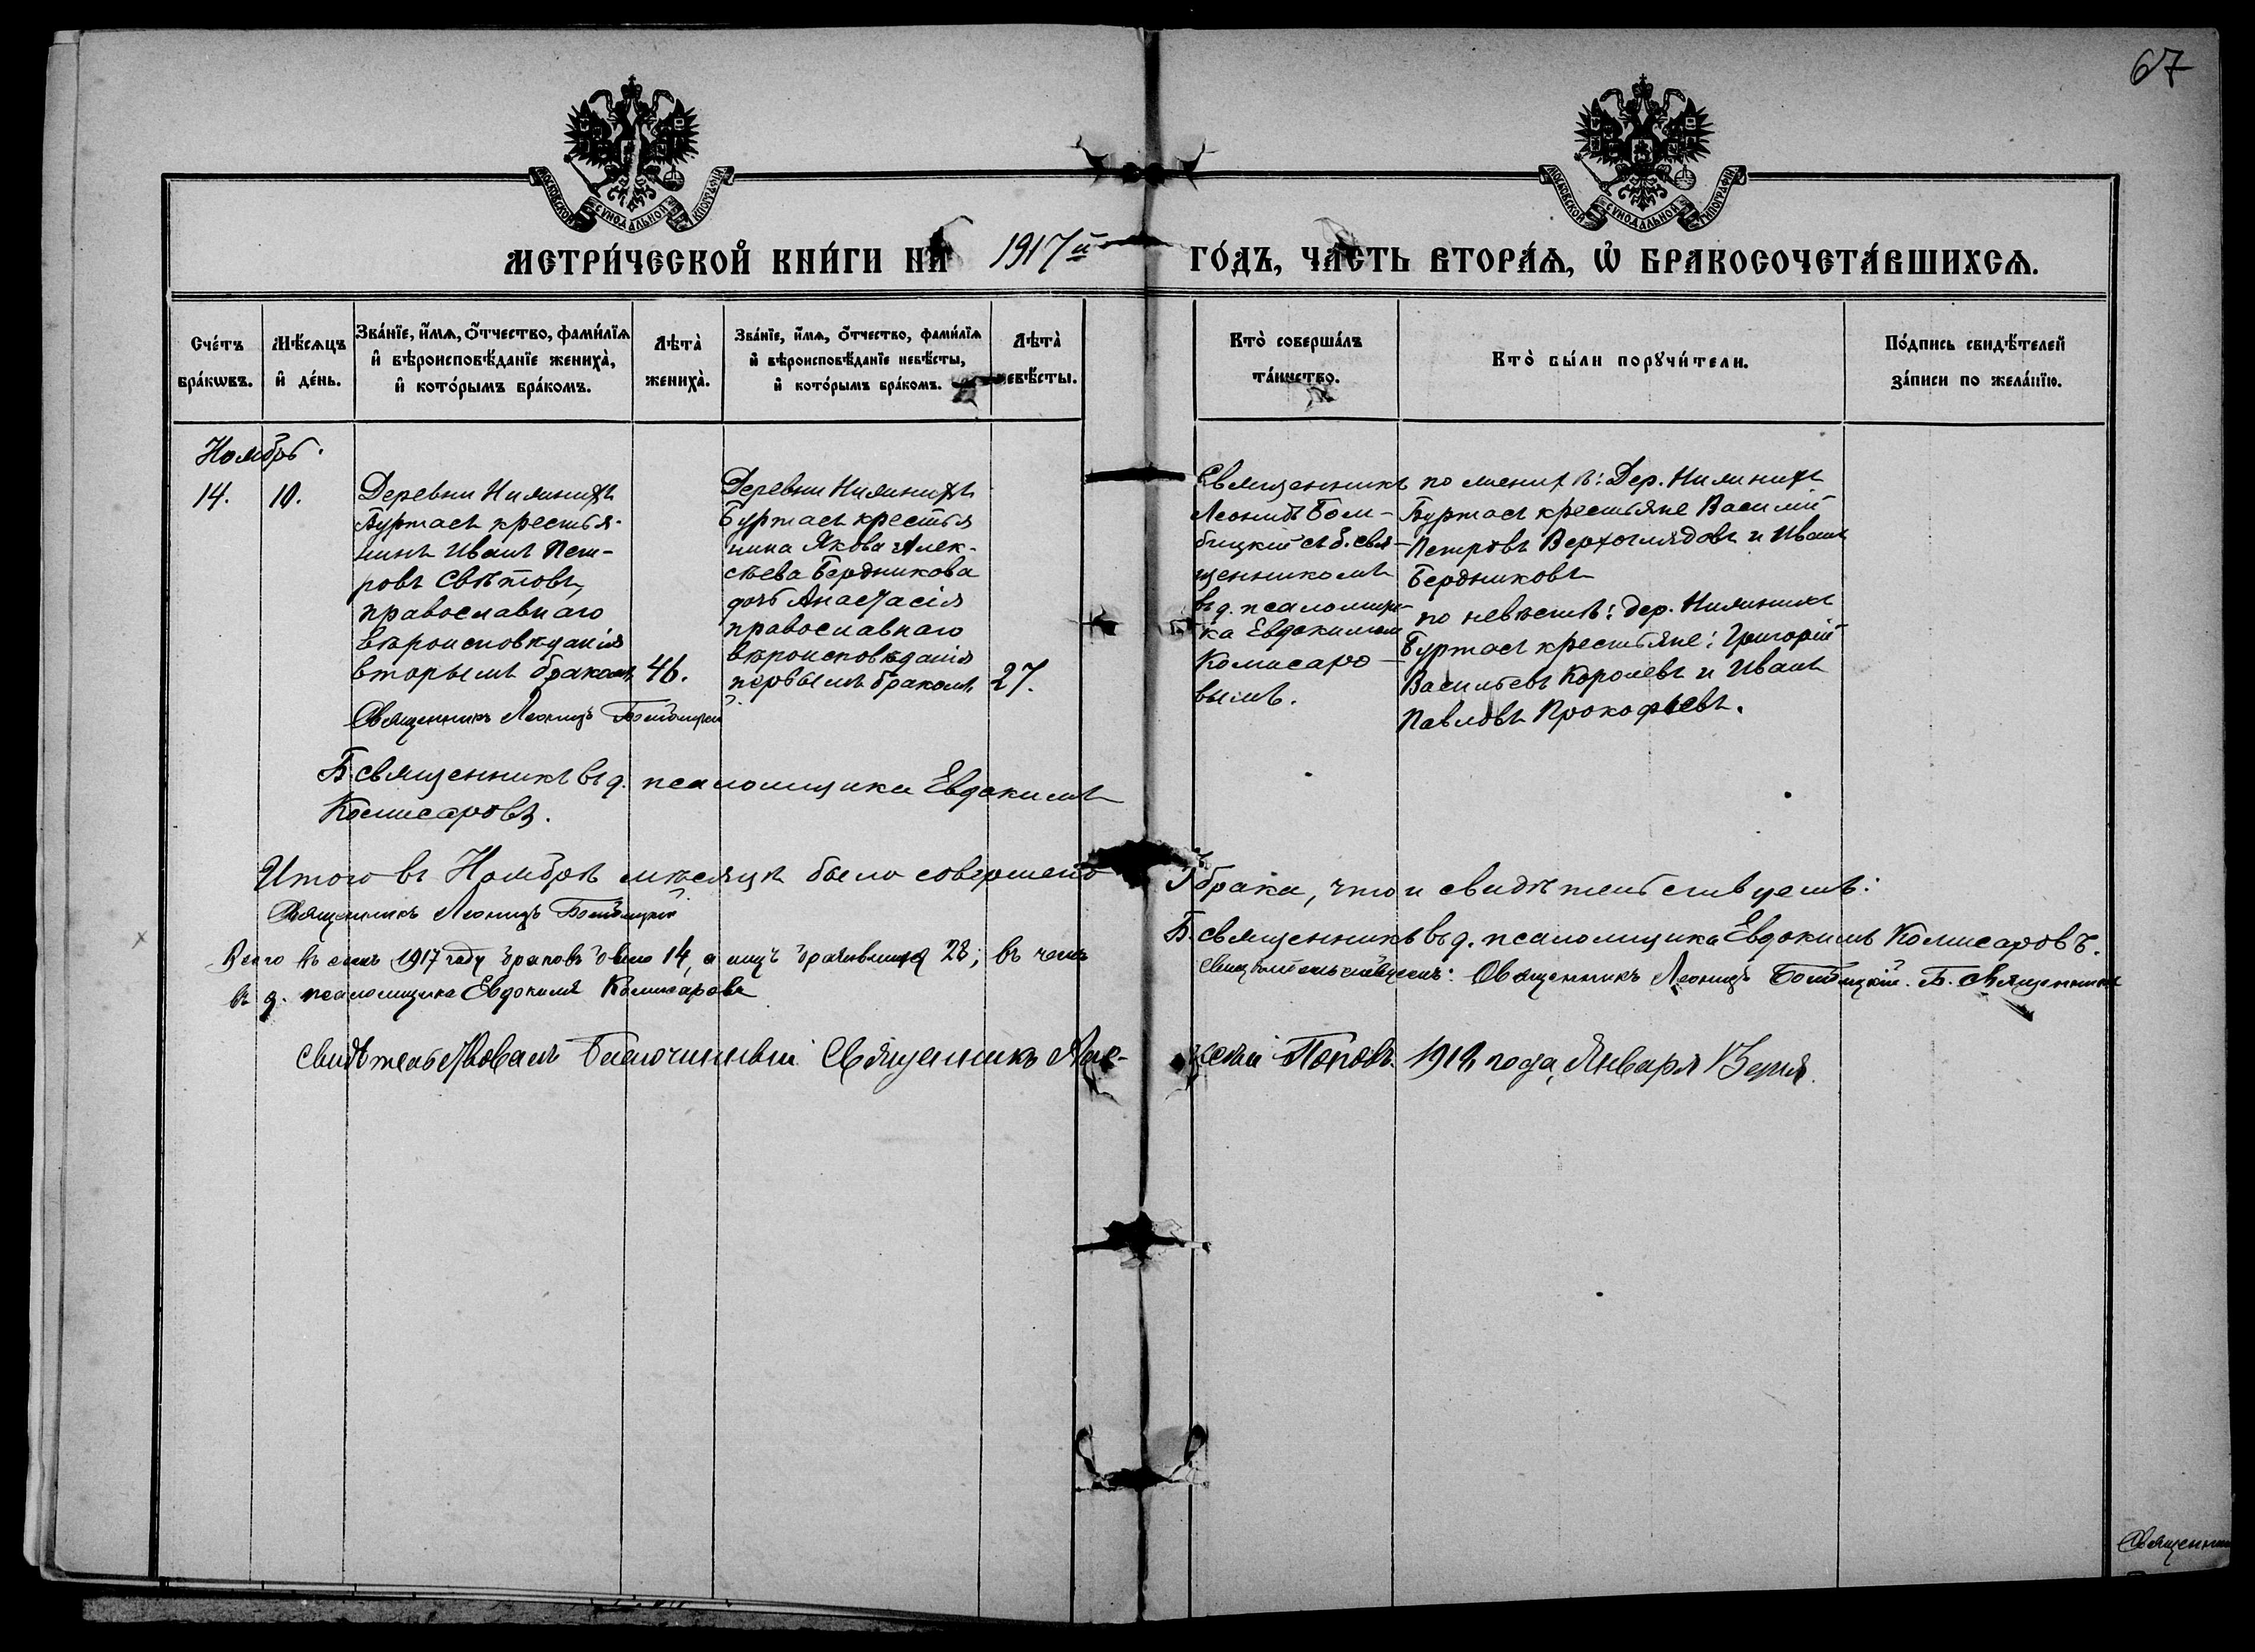 67
МОСКОВСКОЙ СѴНОДАЛЬНОЙ ТИПОГРАФІИ
МОСКОВСКОЙ СѴНОДАЛЬНОЙ ТИПОГРАФІИ
МЕТРИ́ЧЕСКОЙ КНИ́ГИ НА 1917й ГО́ДЪ, ЧА́СТЬ ВТОРА́Ѧ, Ѡ҆ БРАКОСОЧЕТА́ВШИХСѦ.
Сче́тъ бра́кѡвъ.
Мѣ́сѧцъ и҆ де́нь.
Зва́нїе, и҆́мѧ, ѻ҆́тчество, фами́лїѧ и҆ вѣроисповѣ́данїе жениха̀, и҆ кото́рымъ бра́комъ.
Лѣта̀ жениха̀.
Зва́нїе, и҆́мѧ, ѻ҆́тчество, фами́лїѧ и҆ вѣроисповѣ́данїе невѣ́сты, и҆ кото́рымъ бра́комъ.
Лѣта̀ невѣ́сты.
Кто̀ соверша́лъ та́инство.
Кто̀ бы́ли порꙋчи́тели.
По́дпись свидѣ́телей за́писи по жела́нїю.
Ноябрь.
14.
10.
Деревни Нижнихъ
Буртасъ крестья-
нинъ Иванъ Пет-
ровъ Свѣтовъ,
православнаго
вѣроисповѣданія
вторымъ бракомъ
46.
Деревни Нижнихъ
Буртасъ крестья
нина Якова Алек-
сѣева Бердникова
дочь Анастасія
православнаго
вѣроисповѣданія
первымъ бракомъ
27.
Священникъ
Леонидъ Бом-
бицкій съ б. свя-
щенникомъ
въ д. псаломщи-
ка Евдокимом
Комисаро-
вымъ.
по женихѣ: Дер. Нижнихъ
Буртасъ крестьяне Василій
Петровъ Верхоглядовъ и Иванъ
Бердниковъ
по невѣстѣ: дер. Нижнихъ
Буртасъ крестьяне: Григорій
Васильевъ Королевъ и Иванъ
Павловъ Прокофьевъ.
Священникъ Леонидъ
Б. священникъ въ д. псаломщика Евдокимъ
Комисаровъ.
Итого въ Ноябрѣ мѣсяцѣ было совершено брака, что и свидѣтельствуемъ:
Священникъ Леонидъ
Б. священникъ въ д. псаломщика Евдокимъ Комисаровъ.
Всего въ семъ 1917 году браковъ было 14, а лицъ 28; въ чемъ свидѣтельствуемъ: Священникъ Леонидъ Б. Священникъ
въ д. псаломщика Евдокимъ Комисаровъ
Свидѣтельствовалъ Благочинный Священникъ Алексѣй Поповъ. 1918 года, Января 13 дня.
Священник